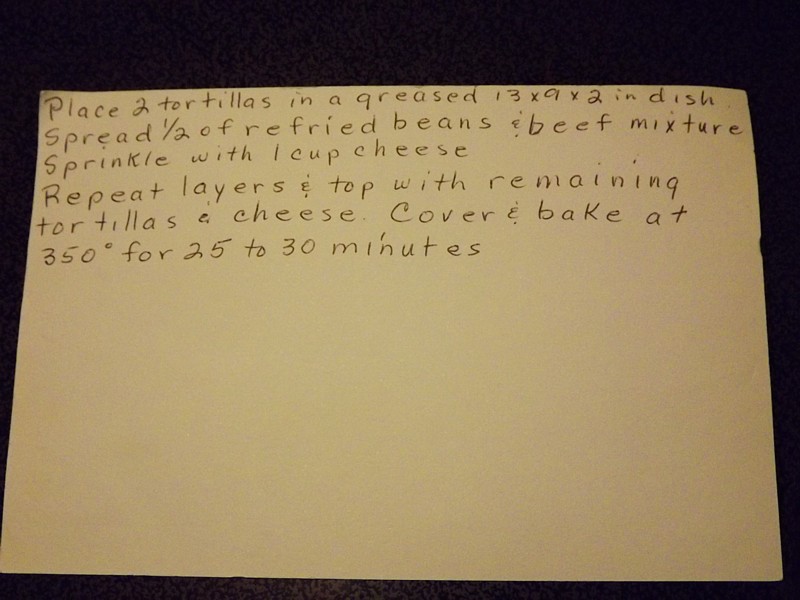 Place 2 tortillas in a greased 13x9x2 in dish.
Spread 1/2 of refried beans & beef mixture
Sprinkle with 1 cup cheese
Repeat layers & top with remaining
tortillas & cheese. Cover & bake at
350° for 25 to 30 minutes